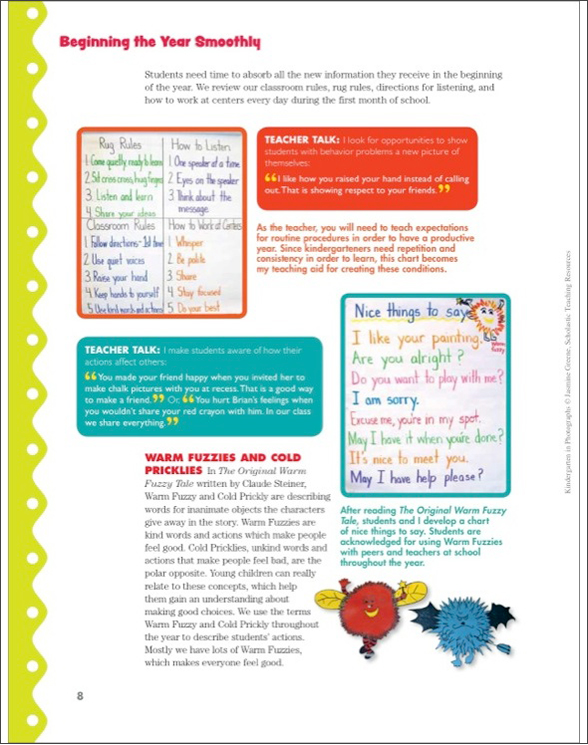 Beginning the Year Smoothly
Students need time to absorb all the new information they receive in the beginning
of the year. We review our classroom rules, rug rules, directions for listening, and
how to work at centers every day during the first month of school.
Rug Rules
1. Come quietly ready to learn
2. Sit criss cross, hug fingers
3. Listen and learn
4. Share your ideas
How to Listen
1. One speaker at a time
2. Eyes on the speaker
3. Think about the
message
Classroom Rules
1. Follow directions - 1st time
2. Use quiet voices
3. Raise your hand
4. Keep hands to yourself
5. Use kind words and actions
How to Work at Centers
1. Whisper
2. Be polite
3. Share
4. Stay focused
5. Do your best
TEACHER TALK: I look for opportunities to show
students with behavior problems a new picture of
themselves:
“I like how you raised your hand instead of calling
out. That is showing respect to your friends.”
As the teacher, you will need to teach expectations
for routine procedures in order to have a productive
year. Since kindergarteners need repetition and
consistency in order to learn, this chart becomes
my teaching aid for creating these conditions.
TEACHER TALK: I make students aware of how their
actions affect others:
“You made your friend happy when you invited her to
make chalk pictures with you at recess. That is a good way
to make a friend.” Or: “You hurt Brian's feelings when
you wouldn't share your red crayon with him. In our class
we share everything.”
Nice things to say
I like your painting.
Are you alright?
Do you want to play with me?
I am sorry.
Excuse me, you're in my spot.
May I have it when you're done?
It's nice to meet you.
May I have help please?
WARM FUZZIES AND COLD
PRICKLIES In The Original Warm
Fuzzy Tale written by Claude Steiner,
Warm Fuzzy and Cold Prickly are describing
words for inanimate objects the characters
give away in the story. Warm Fuzzies are
kind words and actions which make people
feel good. Cold Pricklies, unkind words and
actions that make people feel bad, are the
polar opposite. Young children can really
relate to these concepts, which help
them gain an understanding about
making good choices. We use the terms
Warm Fuzzy and Cold Prickly throughout
the year to describe students' actions.
Mostly we have lots of Warm Fuzzies,
which makes everyone feel good.
After reading The Original Warm Fuzzy
Tale, students and I develop a chart
of nice things to say. Students are
acknowledged for using Warm Fuzzies
with peers and teachers at school
throughout the year.
Kindergarten in Photographs © Jasmine Greene, Scholastic Teaching Resources
8